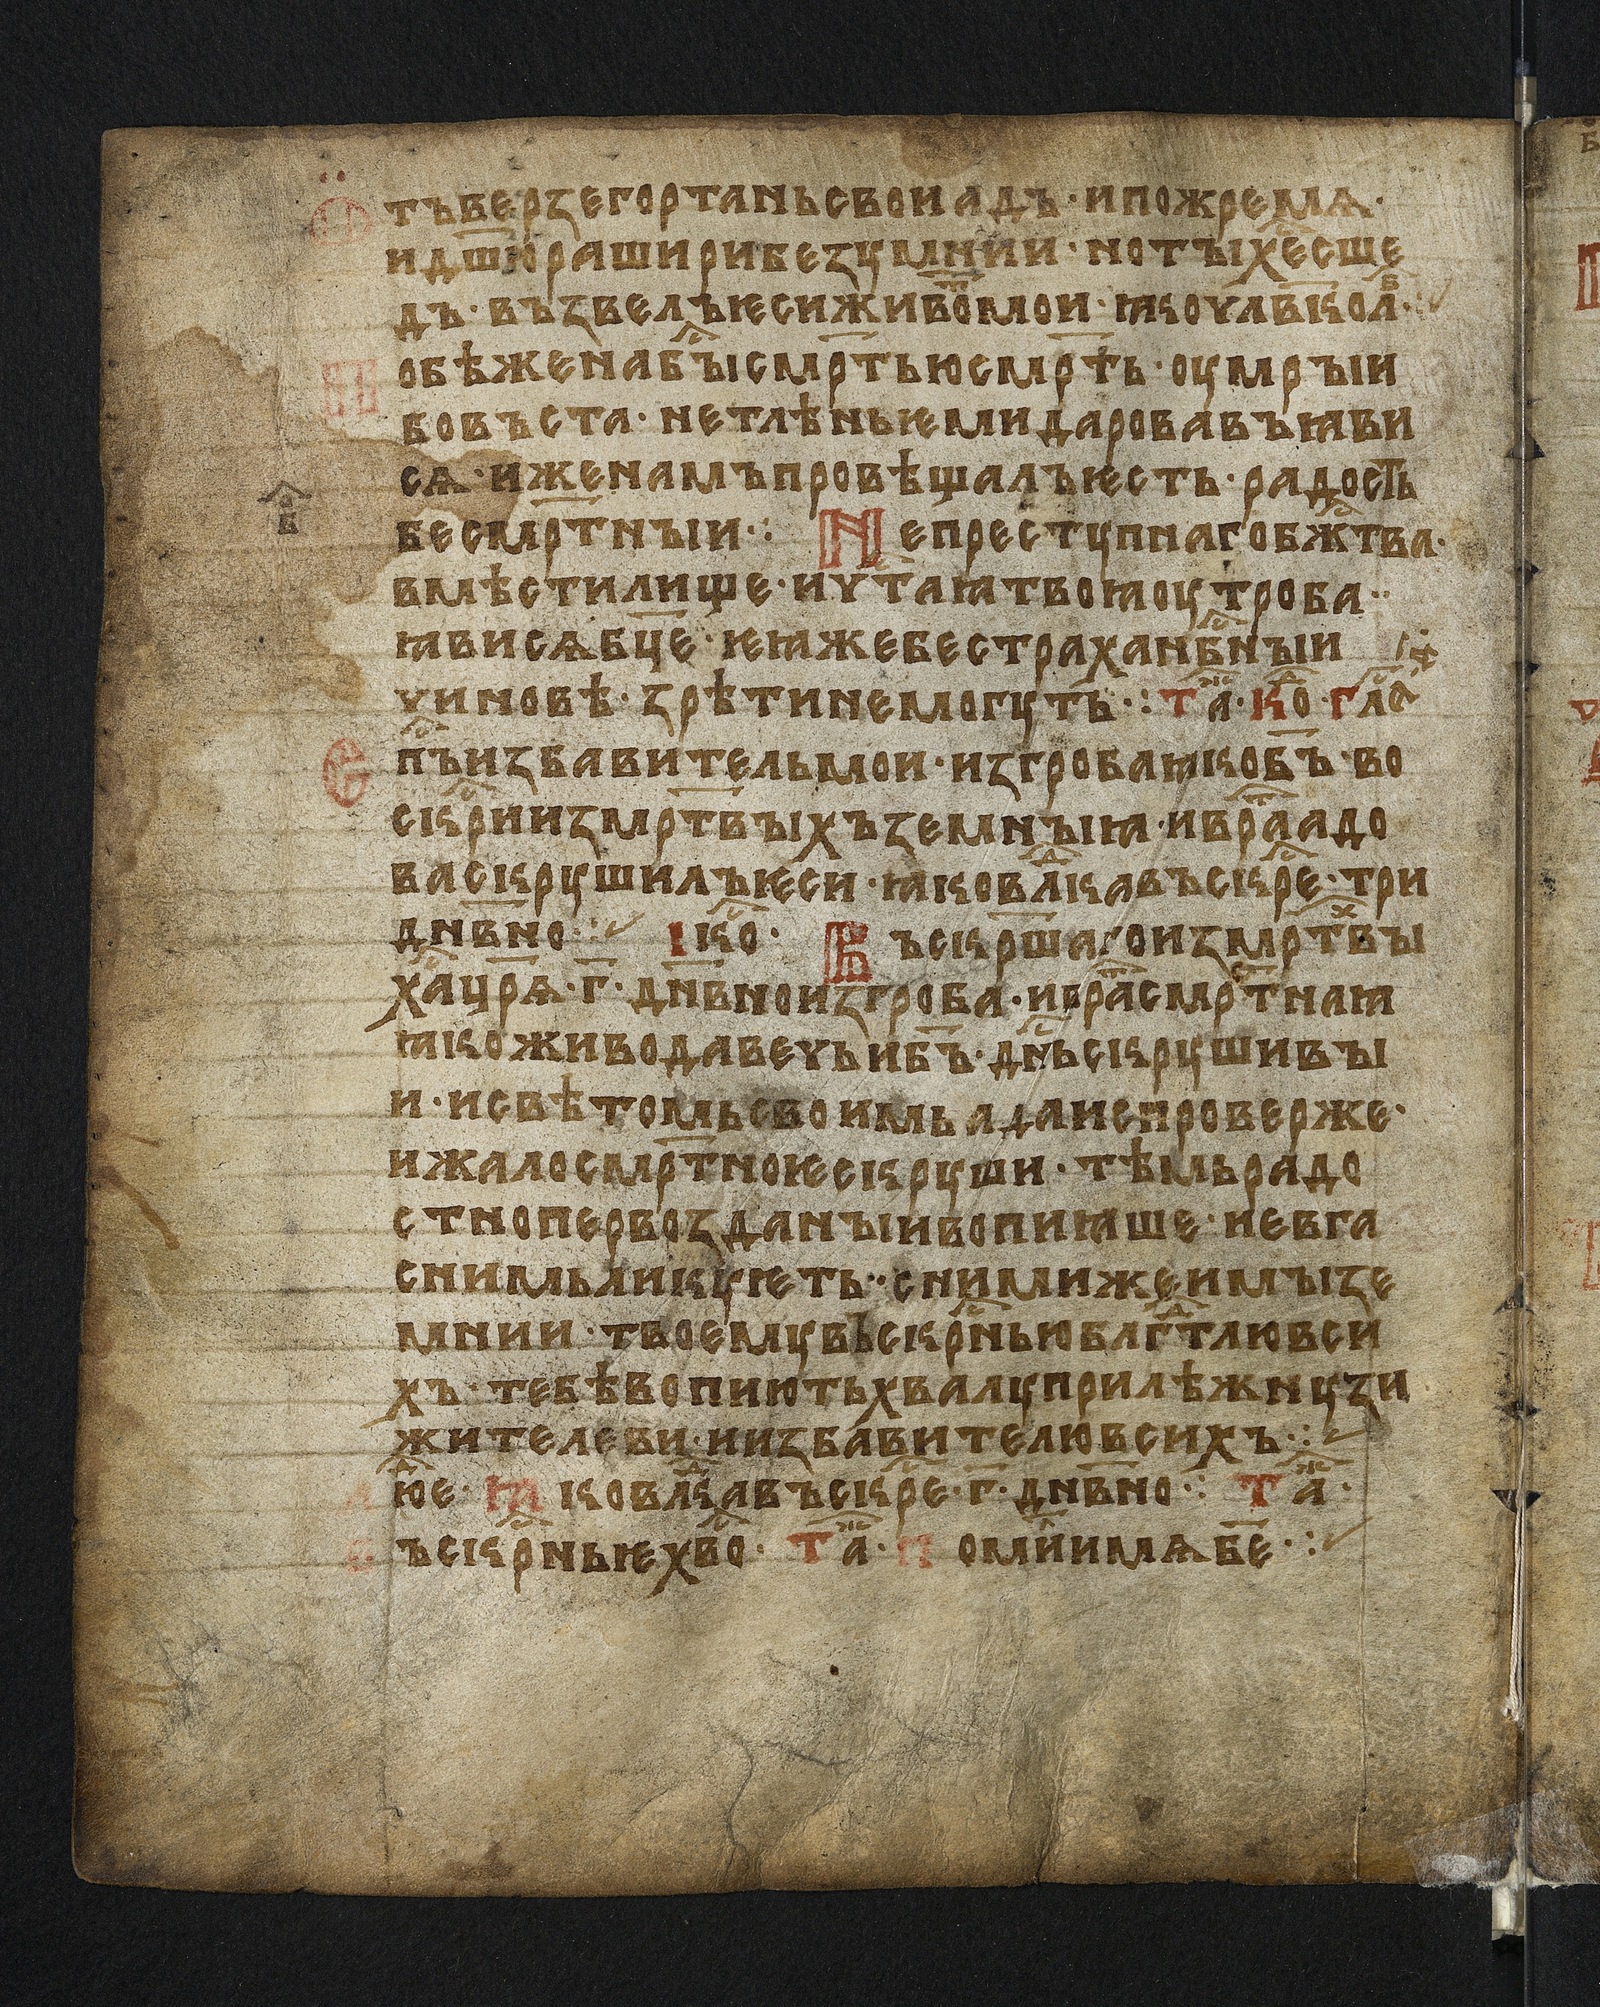 Ѿтъверзегортаньсвоиадъ· ипожремѧ·
идш҃юраширибезꙋмнии· нотыхе҇сше
дъ· възвелъѥсиживо҃мои· ꙗкоч҃лвкол·
П обѣженабы҇смр҃тьюсмр҃ть· оꙋмрыи
бовъста· нетлѣньѥмидаровавъꙗви
сѧ· иженамъпровѣщалъѥсть· радость
бесмр҃тныи·: Непрестꙋпнагобж҇тва·
вмѣстилище· иѵтаꙗтвоꙗоꙋтроба··
ꙗвисѧбц҃е· ѥꙗжебестраханб҇ныи
чиновѣ· зрѣтинемогꙋть·: Та· ко· гла҇
С п҇ъизбавительмои· изгробаꙗкоб҃ъ· во
скр҇ииизмр҃твыхъземныꙗ· иврааадо
васкрꙋшилъѥси· ꙗковлⷣкавъскр҇е· три
дн҃вно·: Іко҇· Въскрш҃агоизмр҃твы
хац҇рѧ· г҃· дн҃вноизгроба· иврасмр҃тнаꙗ
ꙗкоживодавечьиб҃ъ· дн҇ьскрꙋшивы
и· исвѣтомьсвоимьадаиспроверже·
ижалосмр҃тноѥскрꙋши· тѣмьрадо
стнопервозданыивопиꙗше· иевга
снимьликꙋѥть·· снимижеимызе
мнии· твоемꙋвъскр҇ньюблагⷣтлювси
хъ· тебѣвопиютьхвалꙋприлѣжнꙋзи
жителеви· иизбавителювсихъ·:
юе· Ꙗковлⷣкавъскр҇е· г҃· дн҃вно·: Таⷤ·
В ъскр҇ньѥхв҇о· Таⷤ· П оми҇имѧбе·: